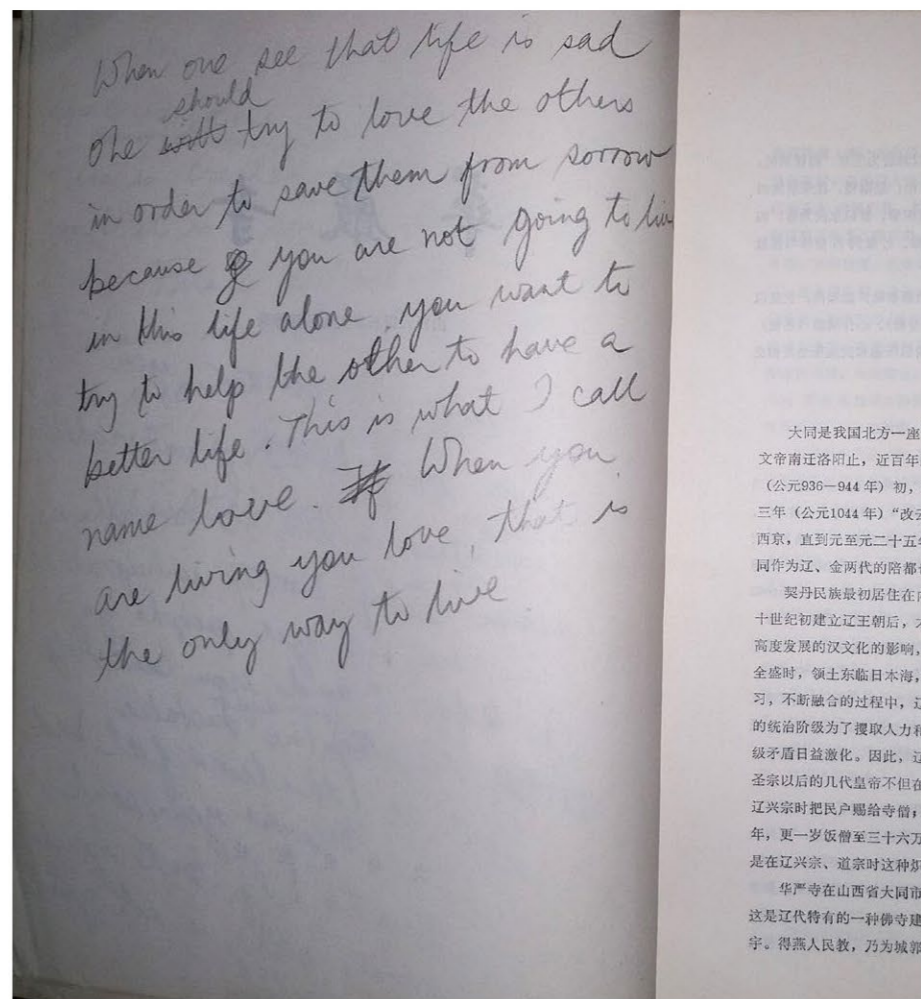 When one see that life is sad
should
One will try to love the others
in order to save them from sorrow
because you are not going to live
in this life alone, you want to
try to help the other to have a
better life. This is what I call
name love. If When you
are living you love, that is
the only way to live
大同是我国北方一座
文帝南迁洛阳止，近百年
（公元936—944年）初，
三年（公元1044年）“改云
西京，直到元至元二十五年
同作为辽、金两代的陪都
契丹民族最初居住在
十世纪初建立辽王朝后，
高度发展的汉文化的影响，
全盛时，领土东临日本海，
习，不断融合的过程中，辽
的统治阶级为了攫取人力和
级矛盾日益激化。因此，辽
圣宗以后的几代皇帝不但在
辽兴宗时把民户赐给寺僧；
年，更一岁饭僧至三十六万
是在辽兴宗、道宗时这种
华严寺在山西省大同市
这是辽代特有的一种佛寺建
宇。得燕人民教，乃为城郭